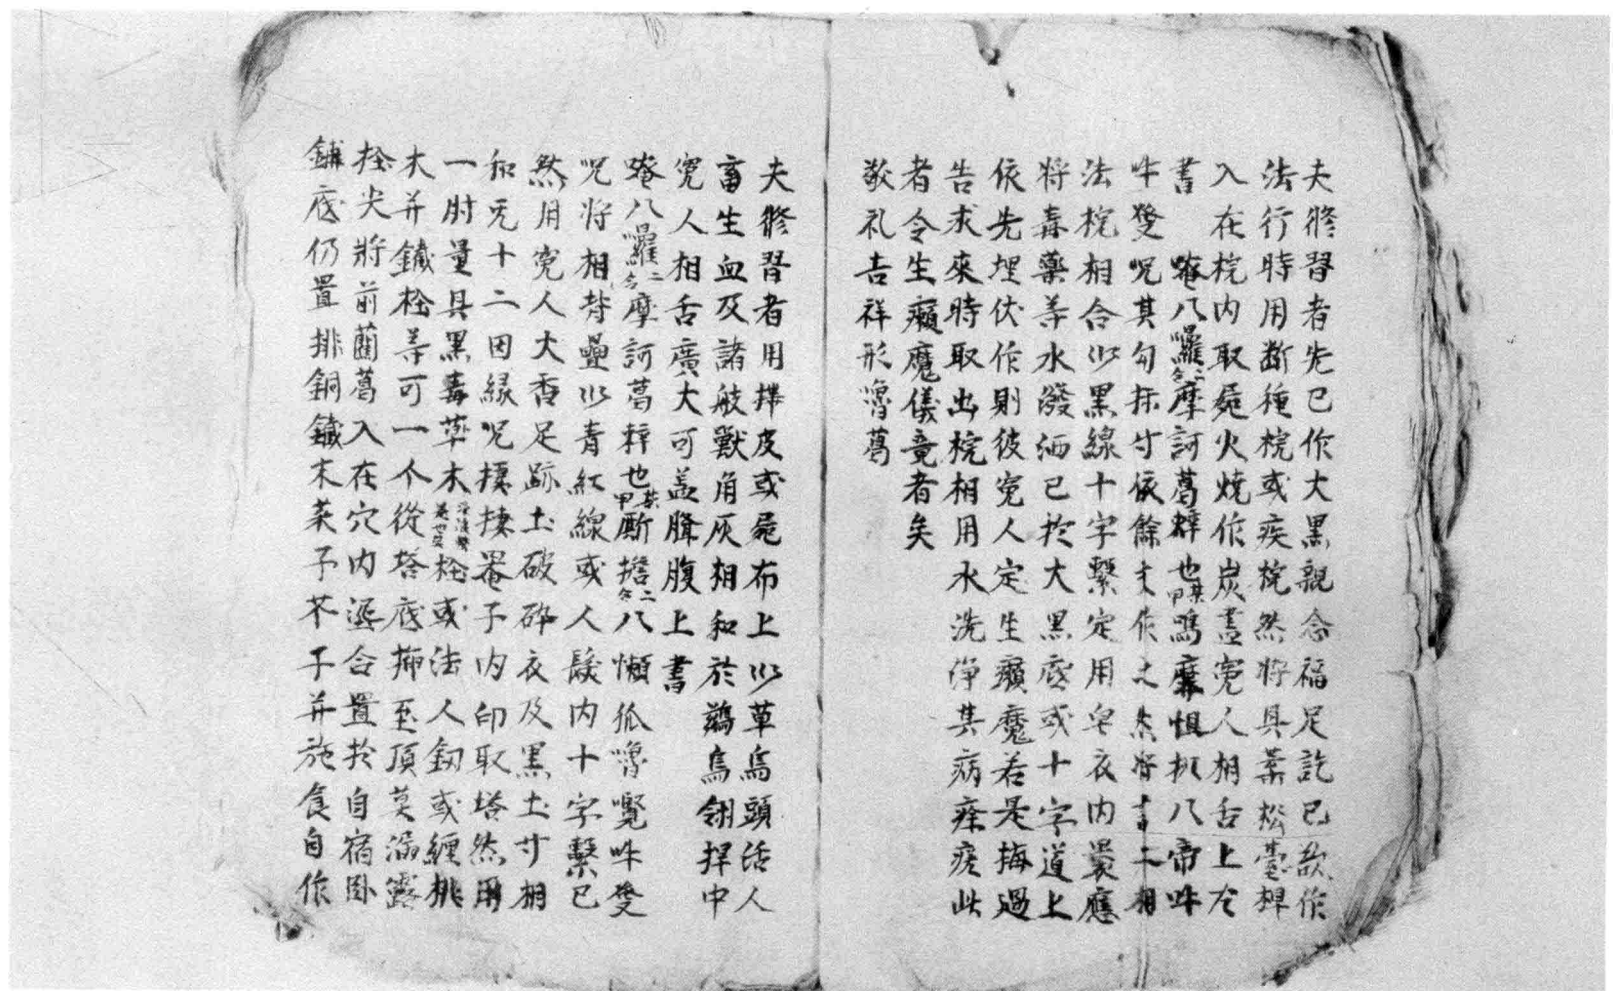 夫修習者先已作大黑親念福足訖已欲作
法行時用斷種椀或疾椀然將具葉松臺椑
入在椀内取屍火燒作炭畫寃人相舌上左
書 唵八囉二合摩訶葛
吽發呪其勾
法椀相合以黑線十字繫定用皂衣内褁應
將毒藥等水潑洒已於大黑底或十字道上
依先埋伏作則彼寃人定生癩魔若是悔過
告求來時取出椀相用水洗淨其病痊瘥此
者令生癩魔儀竟者矣
敬礼吉祥形嚕葛
夫修習者用樺皮或屍布上以草烏頭活人
畜生血及諸般獸角灰相和於鷂烏翎捍中
寃人相舌廣大可盖腪腹上書
唵八囉二合摩訶葛 也某甲 擔二合八懶狐嚕 吽發
呪將相背疊以青紅線或人髮内十字繫已
然用寃人大香足跡土破碎衣及黑土寸相
和 十二因緣呪捿捿罨子内印取塔然用
一肘量具黑毒藥木 栓或法人釰或纏桃
木并鐵栓等可一个從塔底㨂至頂莫漏露
栓尖將前藺葛入在穴内 合置於自宿卧
鋪底仍置排銅鐵木菜子芥子并施食自作